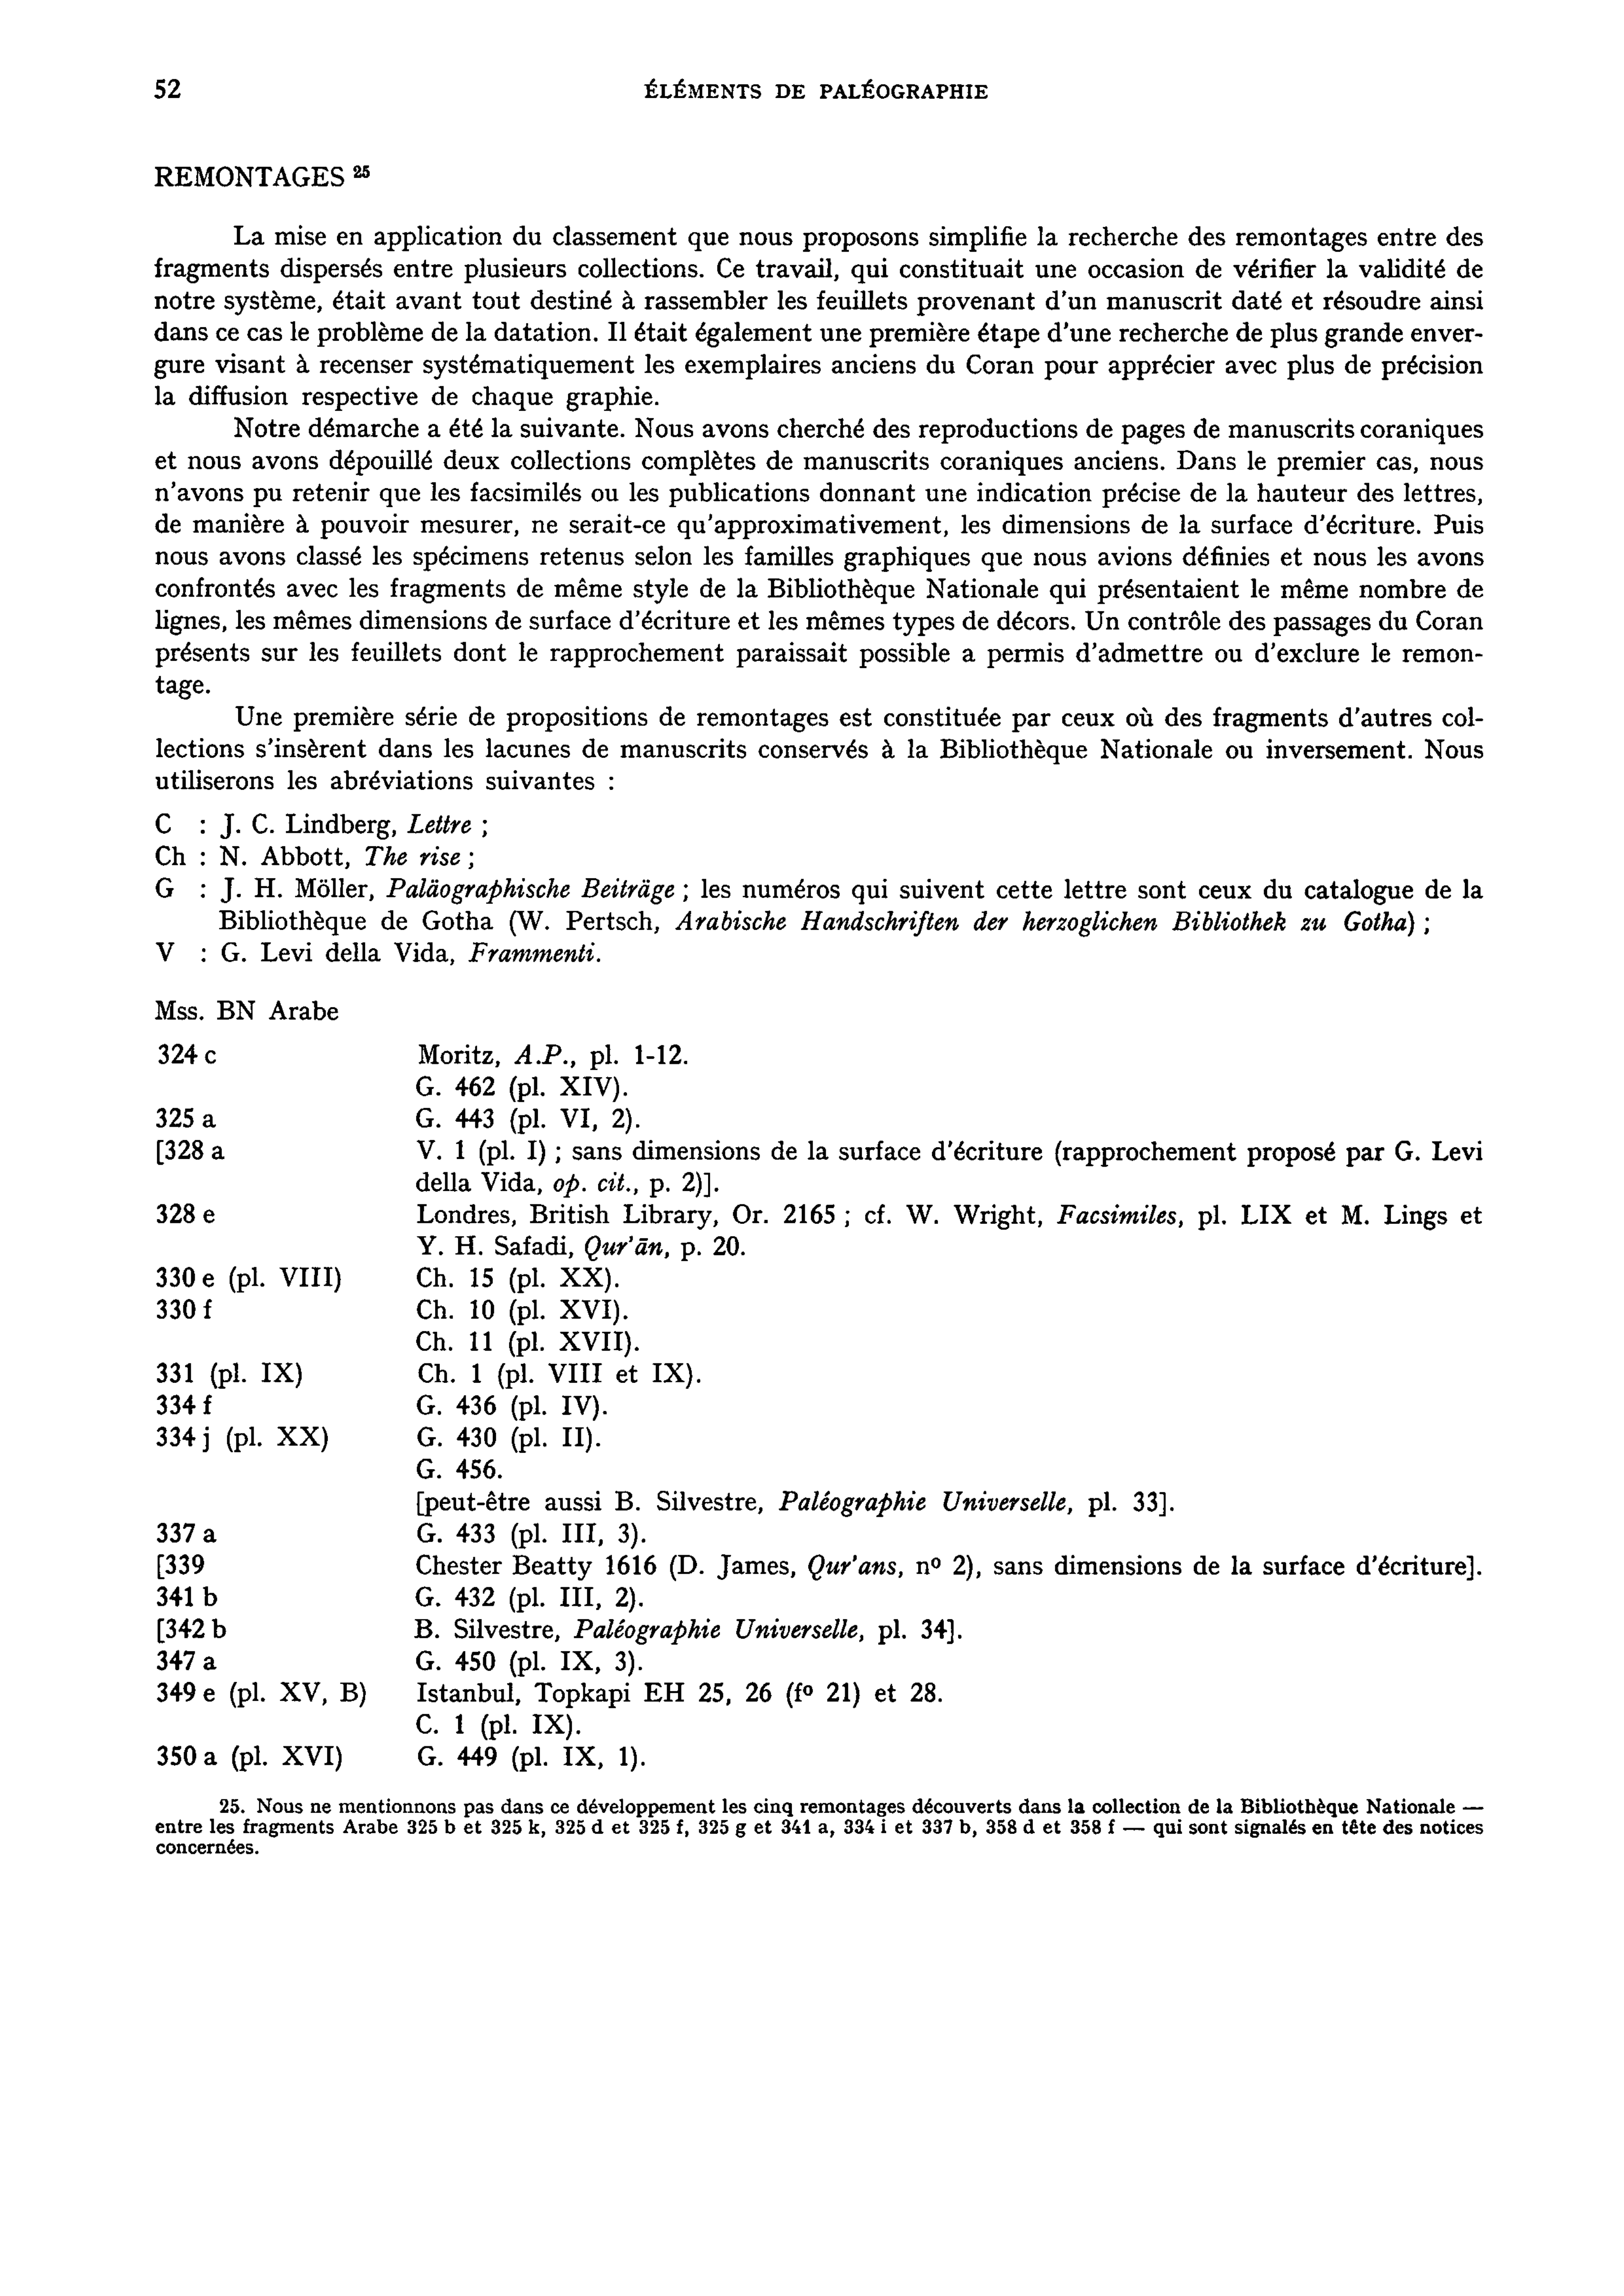 52
ÉLÉMENTS DE PALÉOGRAPHIE
REMONTAGES 25
La mise en application du classement que nous proposons simplifie la recherche des remontages entre des
fragments dispersés entre plusieurs collections. Ce travail, qui constituait une occasion de vérifier la validité de
notre système, était avant tout destiné à rassembler les feuillets provenant d'un manuscrit daté et résoudre ainsi
dans ce cas le problème de la datation. Il était également une première étape d'une recherche de plus grande enver-
gure visant à recenser systématiquement les exemplaires anciens du Coran pour apprécier avec plus de précision
la diffusion respective de chaque graphie.
Notre démarche a été la suivante. Nous avons cherché des reproductions de pages de manuscrits coraniques
et nous avons dépouillé deux collections complètes de manuscrits coraniques anciens. Dans le premier cas, nous
n'avons pu retenir que les facsimilés ou les publications donnant une indication précise de la hauteur des lettres,
de manière à pouvoir mesurer, ne serait-ce qu'approximativement, les dimensions de la surface d'écriture. Puis
nous avons classé les spécimens retenus selon les familles graphiques que nous avions définies et nous les avons
confrontés avec les fragments de même style de la Bibliothèque Nationale qui présentaient le même nombre de
lignes, les mêmes dimensions de surface d'écriture et les mêmes types de décors. Un contrôle des passages du Coran
présents sur les feuillets dont le rapprochement paraissait possible a permis d'admettre ou d'exclure le remon-
tage.
Une première série de propositions de remontages est constituée par ceux où des fragments d'autres col-
lections s'insèrent dans les lacunes de manuscrits conservés à la Bibliothèque Nationale ou inversement. Nous
utiliserons les abréviations suivantes :
C : J. C. Lindberg, Lettre ;
Ch : N. Abbott, The rise ;
G : J. H. Möller, Paläographische Beiträge ; les numéros qui suivent cette lettre sont ceux du catalogue de la
Bibliothèque de Gotha (W. Pertsch, Arabische Handschriften der herzoglichen Bibliothek zu Gotha) ;
V : G. Levi della Vida, Frammenti.
Mss. BN Arabe
324 c Moritz, A.P., pl. 1-12.
G. 462 (pl. XIV).
325 a G. 443 (pl. VI, 2).
[328 a V. 1 (pl. I) ; sans dimensions de la surface d'écriture (rapprochement proposé par G. Levi
della Vida, op. cit., p. 2)].
328 e Londres, British Library, Or. 2165 ; cf. W. Wright, Facsimiles, pl. LIX et M. Lings et
Y. H. Safadi, Qur'ān, p. 20.
330 e (pl. VIII) Ch. 15 (pl. XX).
330 f Ch. 10 (pl. XVI).
Ch. 11 (pl. XVII).
331 (pl. IX) Ch. 1 (pl. VIII et IX).
334 f G. 436 (pl. IV).
334 j (pl. XX) G. 430 (pl. II).
G. 456.
[peut-être aussi B. Silvestre, Paléographie Universelle, pl. 33].
337 a G. 433 (pl. III, 3).
[339 Chester Beatty 1616 (D. James, Qur'ans, nº 2), sans dimensions de la surface d'écriture].
341 b G. 432 (pl. III, 2).
[342 b B. Silvestre, Paléographie Universelle, pl. 34].
347 a G. 450 (pl. IX, 3).
349 e (pl. XV, B) Istanbul, Topkapi EH 25, 26 (fº 21) et 28.
C. 1 (pl. IX).
350 a (pl. XVI) G. 449 (pl. IX, 1).
25. Nous ne mentionnons pas dans ce développement les cinq remontages découverts dans la collection de la Bibliothèque Nationale —
entre les fragments Arabe 325 b et 325 k, 325 d et 325 f, 325 g et 341 a, 334 i et 337 b, 358 d et 358 f — qui sont signalés en tête des notices
concernées.